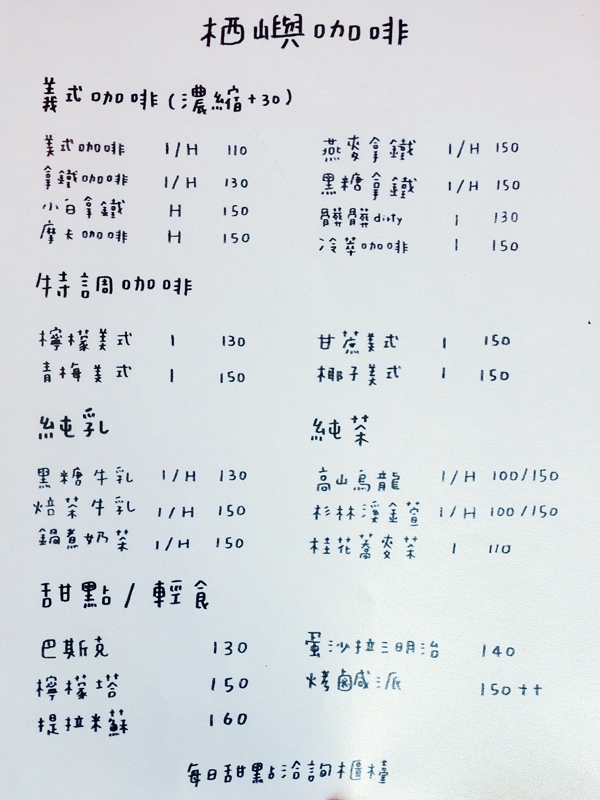 栖嶼咖啡
義式咖啡(濃縮+30)
美式咖啡 I/H 110
拿鐵咖啡 I/H 130
小白拿鐵 H 150
摩卡咖啡 H 150
燕麥拿鐵 I/H 150
黑糖拿鐵 I/H 150
髒髒dirty I 130
冷萃咖啡 I 150
特調咖啡
檸檬美式 I 130
青梅美式 I 150
甘蔗美式 I 150
椰子美式 I 150
純乳
黑糖牛乳 I/H 130
焙茶牛乳 I/H 150
鍋煮奶茶 I/H 150
純茶
高山烏龍 I/H 100/150
杉林溪金萱 I/H 100/150
桂花蕎麥茶 I 110
甜點/輕食
巴斯克 130
檸檬塔 150
提拉米蘇 160
蛋沙拉三明治 140
烤鹵咸派 150++
每日甜點洽詢櫃檯